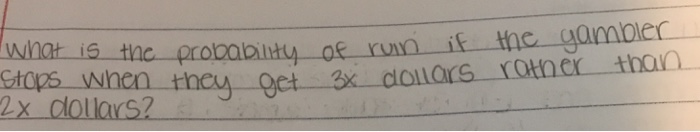 what is the probability of ruin if the gambler
stops when they get 3x dollars rather than
2x dollars?